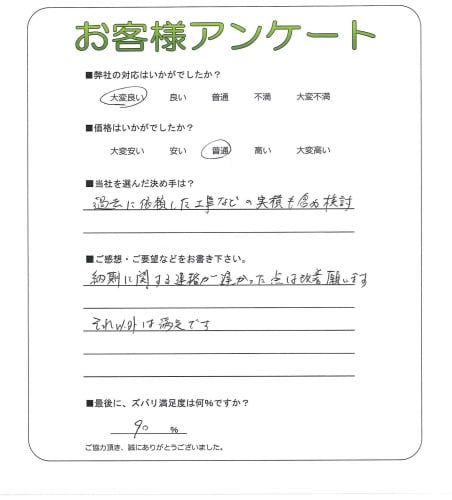 お客様アンケート
■弊社の対応はいかがでしたか?
大変良い 良い 普通 不満 大変不満
■価格はいかがでしたか?
大変安い 安い 普通 高い 大変高い
■当社を選んだ決め手は?
過去に依頼した工事などの実績も含め検討
■ご感想・ご要望などをお書き下さい。
納期に関する連絡が遅かった点は改善願います
それ以外は満足です
■最後に、ズバリ満足度は何%ですか?
90 %
ご協力頂き、誠にありがとうございました。